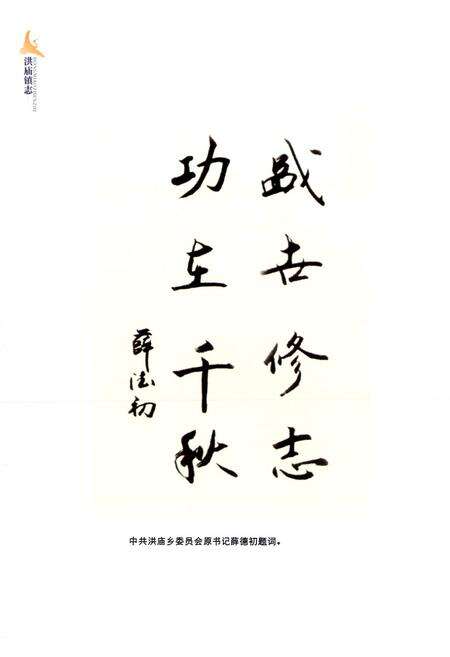 洪庙镇志
HONGMIAOZHENZHI
盛世修志
功在千秋
薛德初
中共洪庙乡委员会原书记薛德初题词。